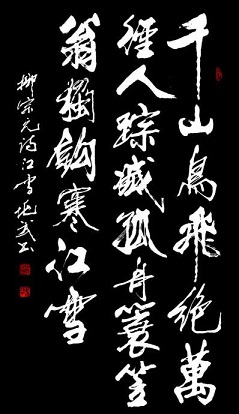 千山鳥飛絶萬
徑人踪滅孤舟簑笠
翁獨釣寒江雪
柳宗元詩江雪